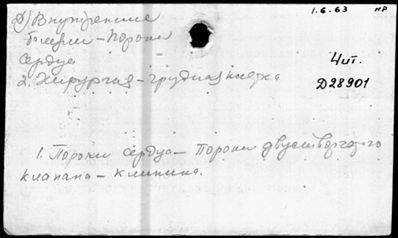 1.6.63 НР
Д) Внутренние
болезни - Пороки
сердца
Чит.
2. Хирургия - грудная клетка
D28901
1. Пороки сердца - Пороки двустворчатого
клапана - клиника.